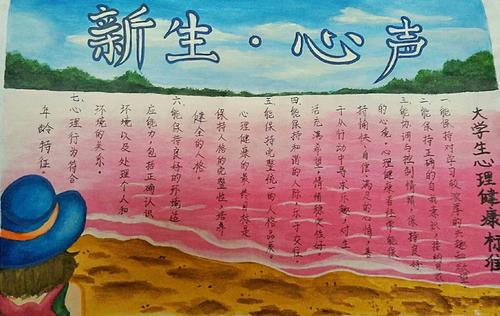 新生·心声
大学生心理健康标准
一.能保持对学习较浓厚的兴趣和求知欲
二.能保持正确的自我意识,接纳自我
三.能协调与控制情绪,保持良好
的心境,心理健康者经常能保
持愉快、自信、满足的心情,善
于从行动中寻求乐趣,对生
活充满希望,情绪稳定性好。
四.能保持和谐的人际,乐于交往。
五.能保持完整统一的人格品质。
心理健康的最终目标是
保持人格的完整性,培养
健全的人格。
六.能保持良好的环境适
应能力,包括正确认识
环境以及处理个人和
环境的关系。
七.心理行为符合
年龄特征。